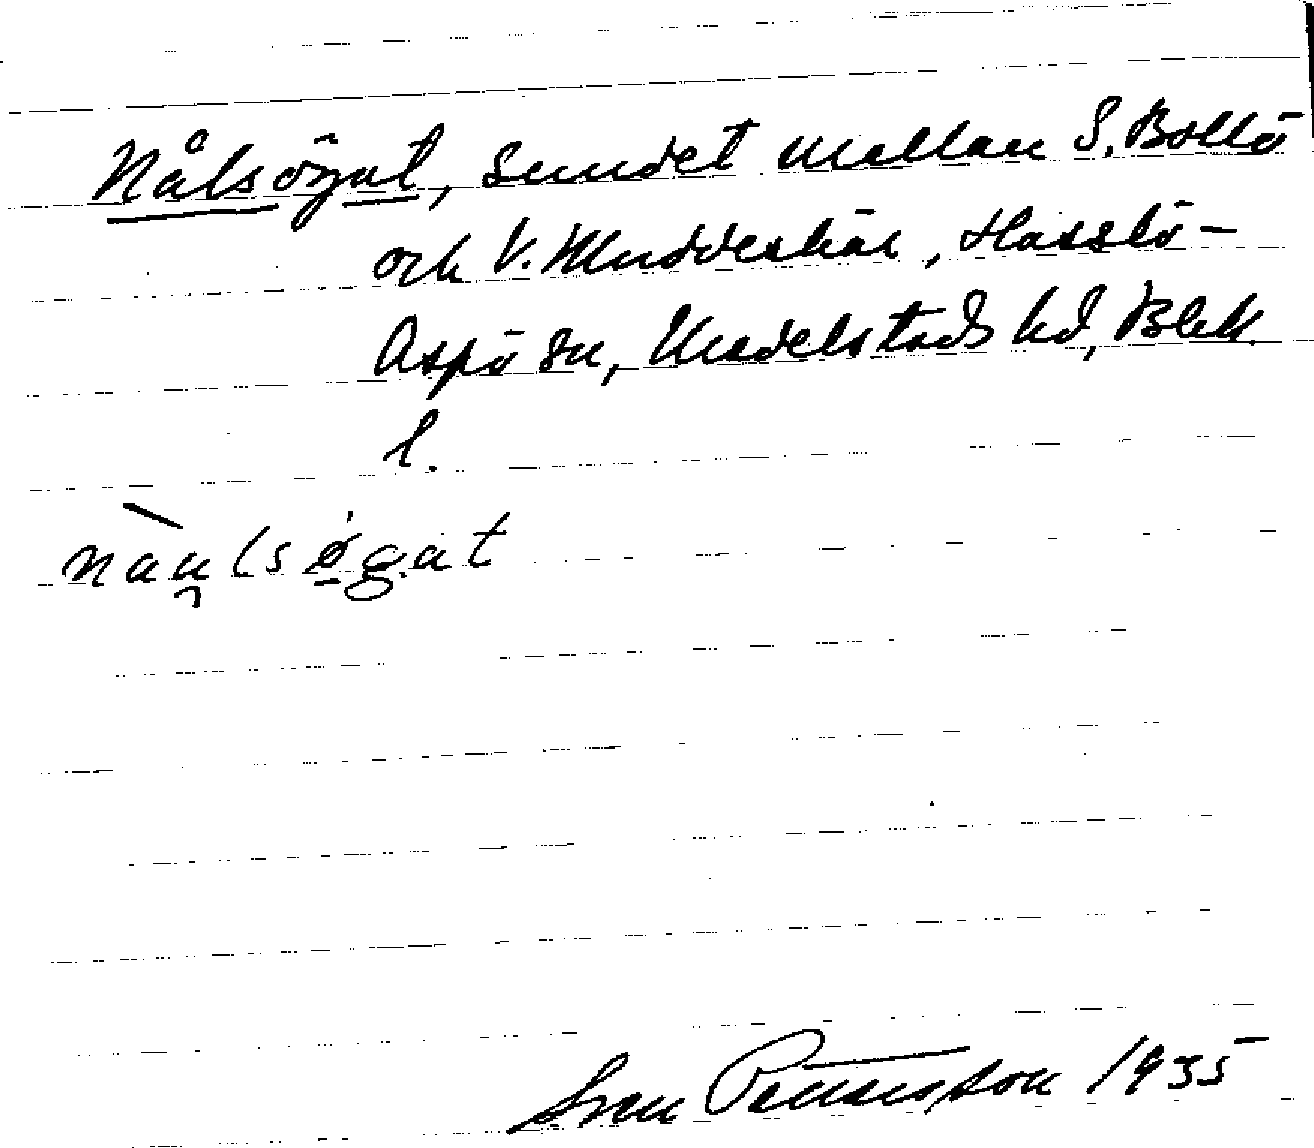 Nålsögat, sundet mellan S. Bollö
och V. Muddeskär, Hasslö-
Aspö sn, Medelstads hd, Blek.
l.
nau̯lsøgat
Sven Pettersson 1935